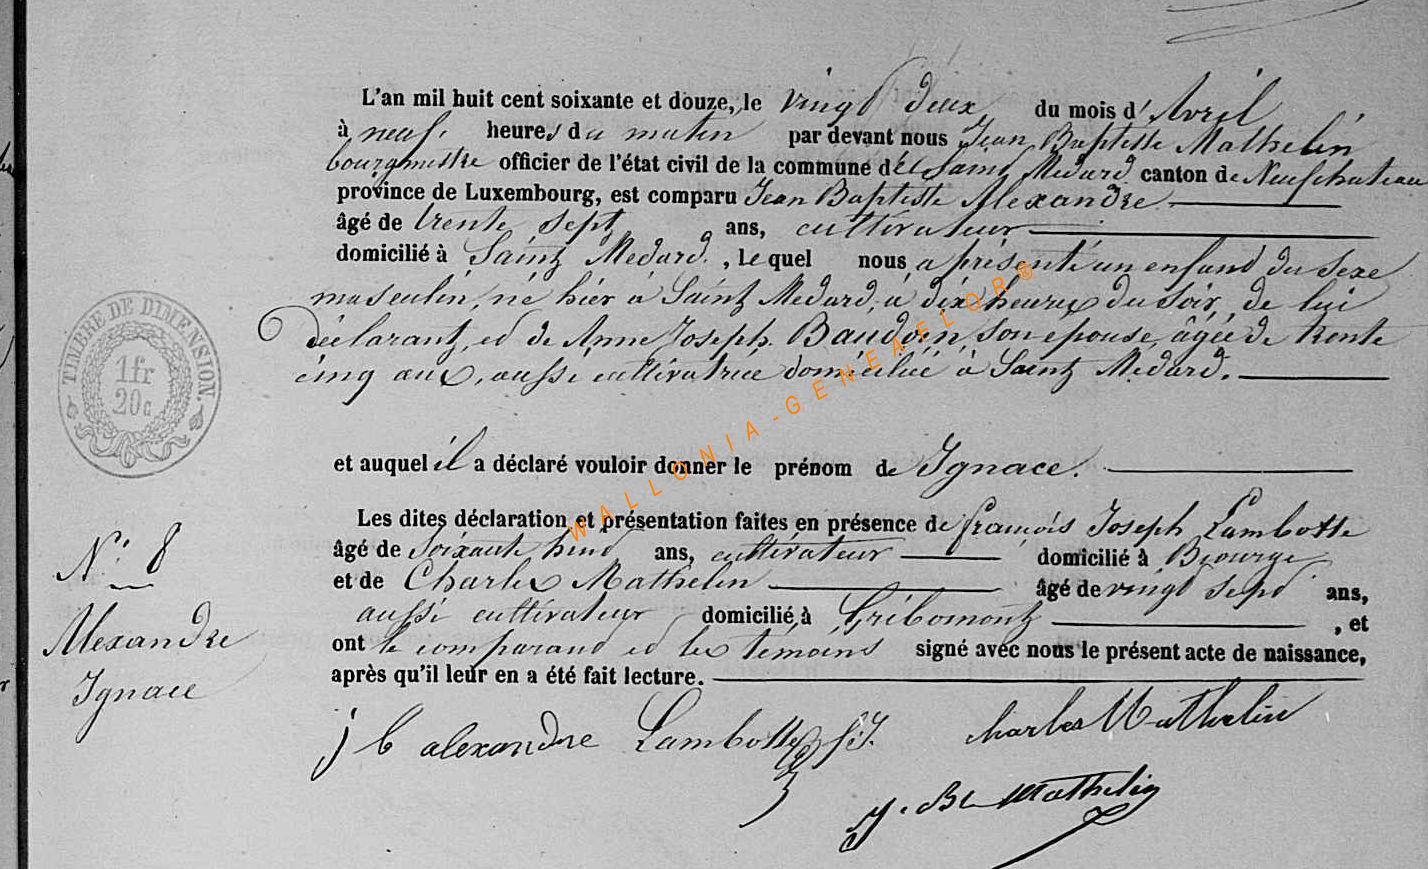 L'an mil huit cent soixante et douze, le vingt deux du mois d'Avril
à neuf heures du matin par devant nous Jean Baptiste Mathelin
bourgmestre officier de l'état civil de la commune de Saint Médard canton de Neufchateau
province de Luxembourg, est comparu Jean Baptiste Alexandre
âgé de trente sept ans, cultivateur
domicilié à Saint Médard, lequel nous a présenté un enfant du sexe
masculin, né hier à Saint Médard, à dix heures du soir, de lui
déclarant, et de Anne Joseph Baudoin, son épouse, âgée de trente
cinq ans, aussi cultivatrice domiciliée à Saint Médard.
et auquel il a déclaré vouloir donner le prénom de Ignace.
Les dites déclaration et présentation faites en présence de françois Joseph Lambotte
âgé de Soixante ans, cultivateur domicilié à Biourge
et de Charles Mathelin âgé de vingt sept ans,
aussi cultivateur domicilié à Gribomont, et
ont le comparant et les témoins signé avec nous le présent acte de naissance,
après qu'il leur en a été fait lecture.
j b alexandre Lambotte f.J. Charles Mathelin
J. Bte Mathelin
N° 8
Alexandre
Ignace
TIMBRE DE DIMENSION.
1fr
20c
WALLONIA-GENEAFLOR®